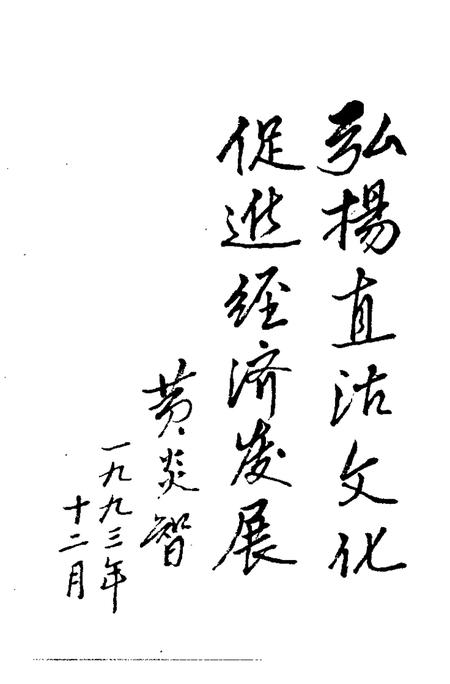 弘揚直沽文化
促進经济发展
黄炎智
一九九三年
十二月